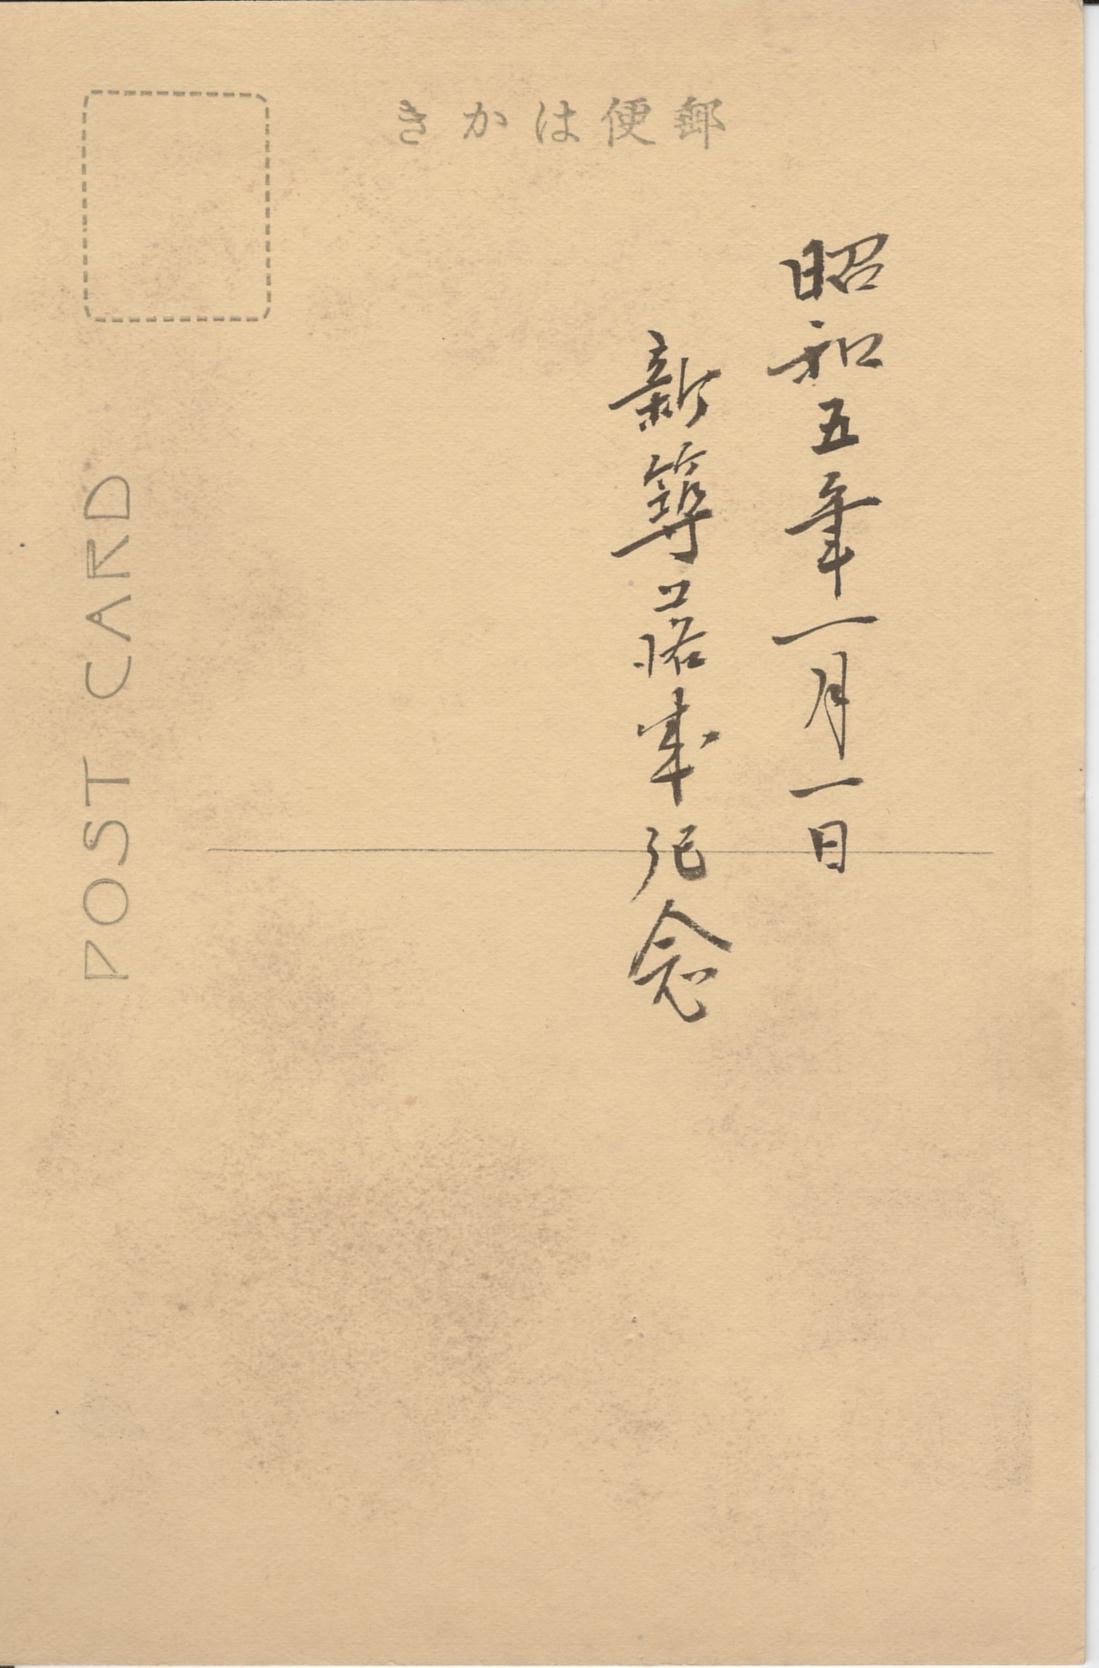 郵便はかき
昭和五年一月一日
新築落成紀念
POST CARD